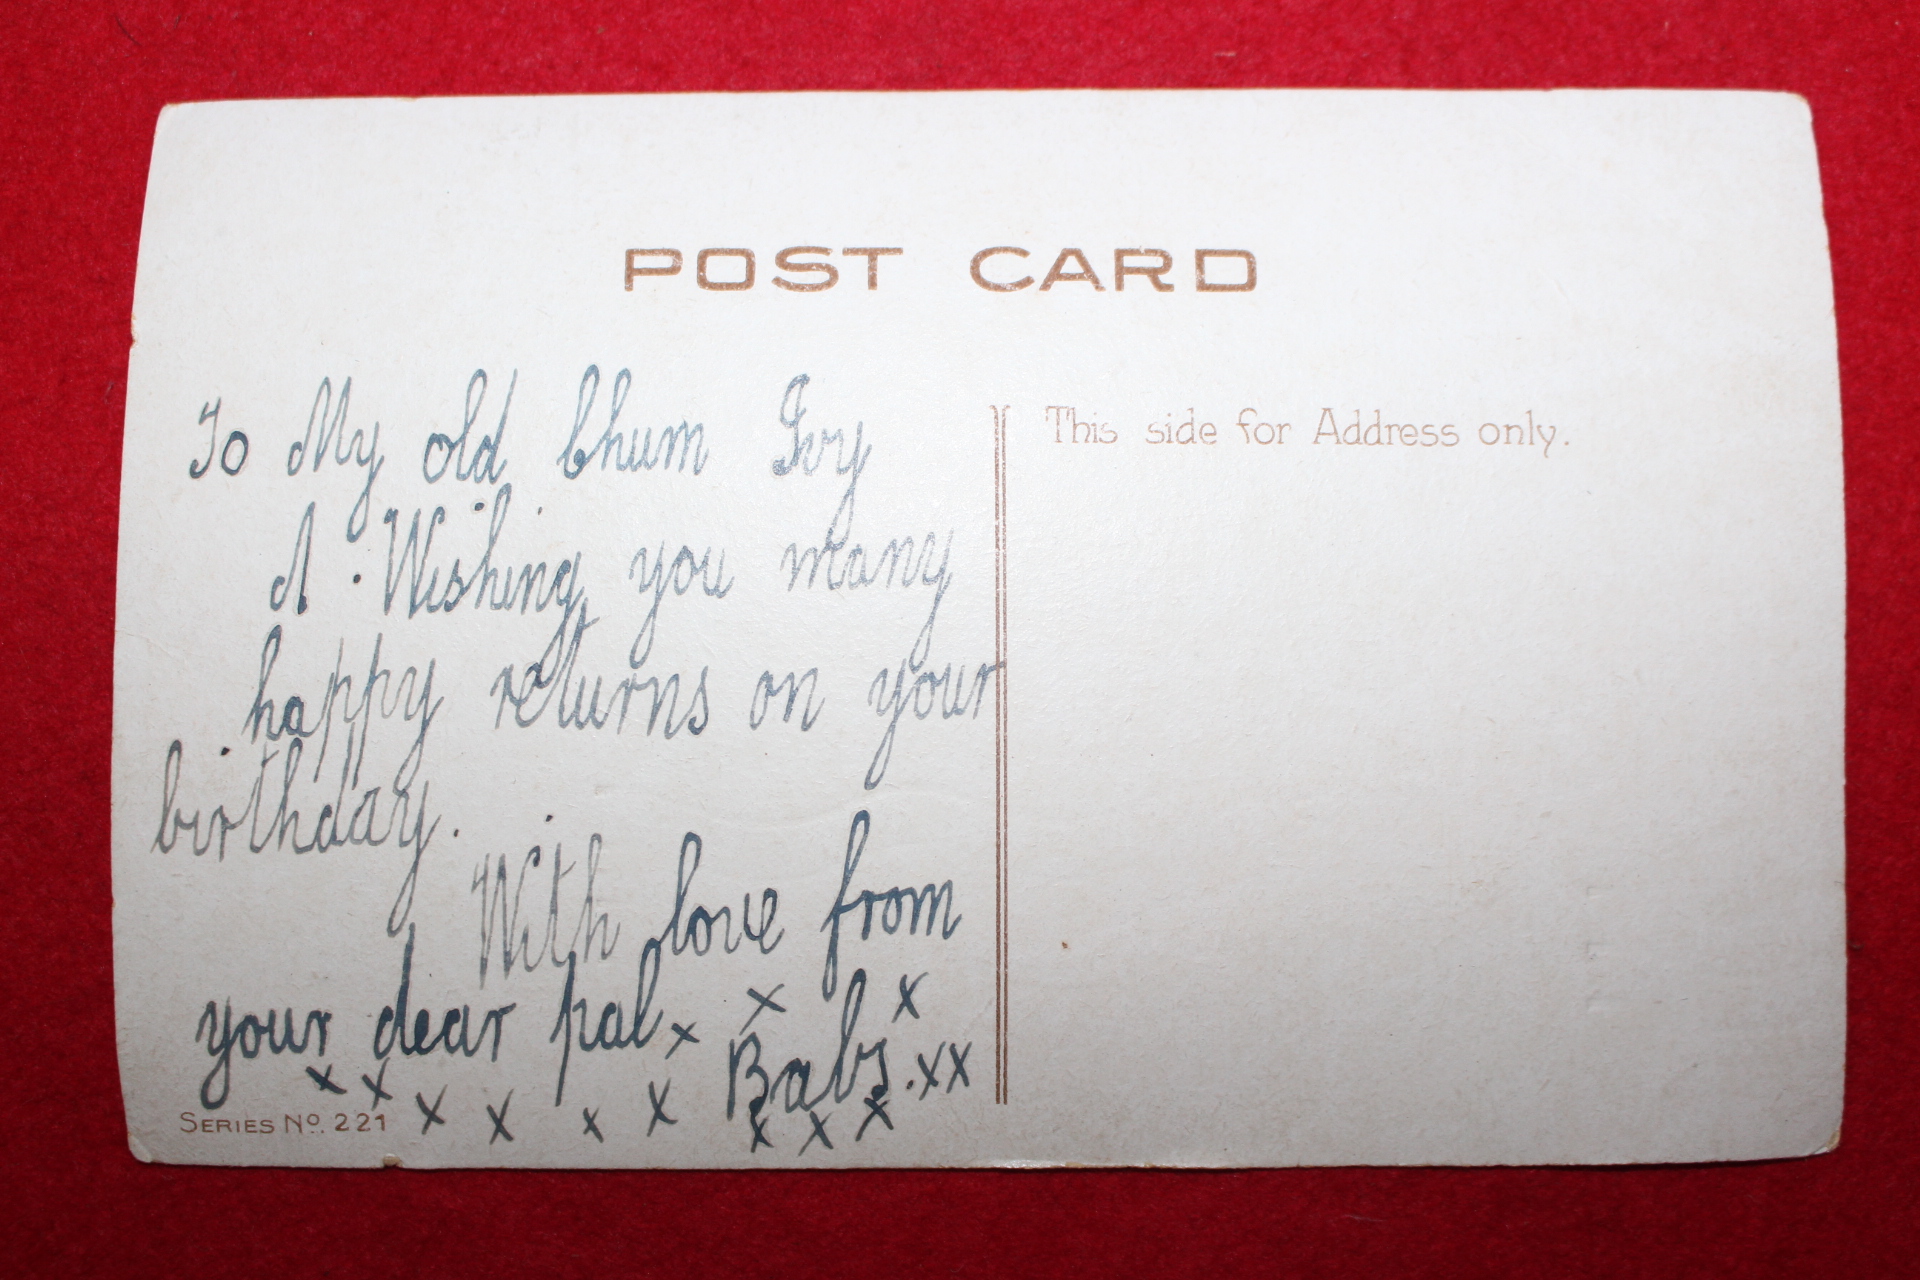 POST CARD
To My old Chum Ivy
A. Wishing you many
happy returns on your
birthday.
With love from
your dear pal x x x
Babs. x x
x x x x x x x x x
This side for Address only.
SERIES No. 221